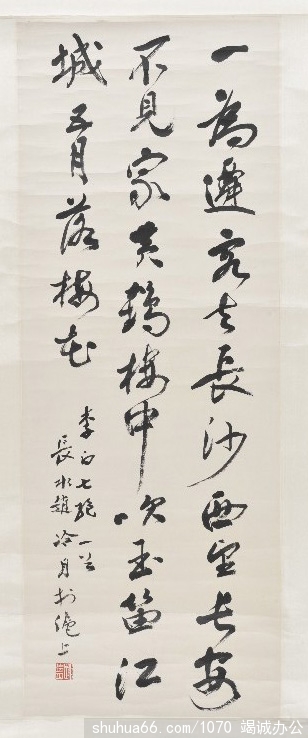 一为遷客去長沙西望長安
不見家黄鶴樓中吹玉笛江
城五月落梅花
李白七绝一首
長水趙冷月於滬上
shuhua66.com/1070 竭诚办公